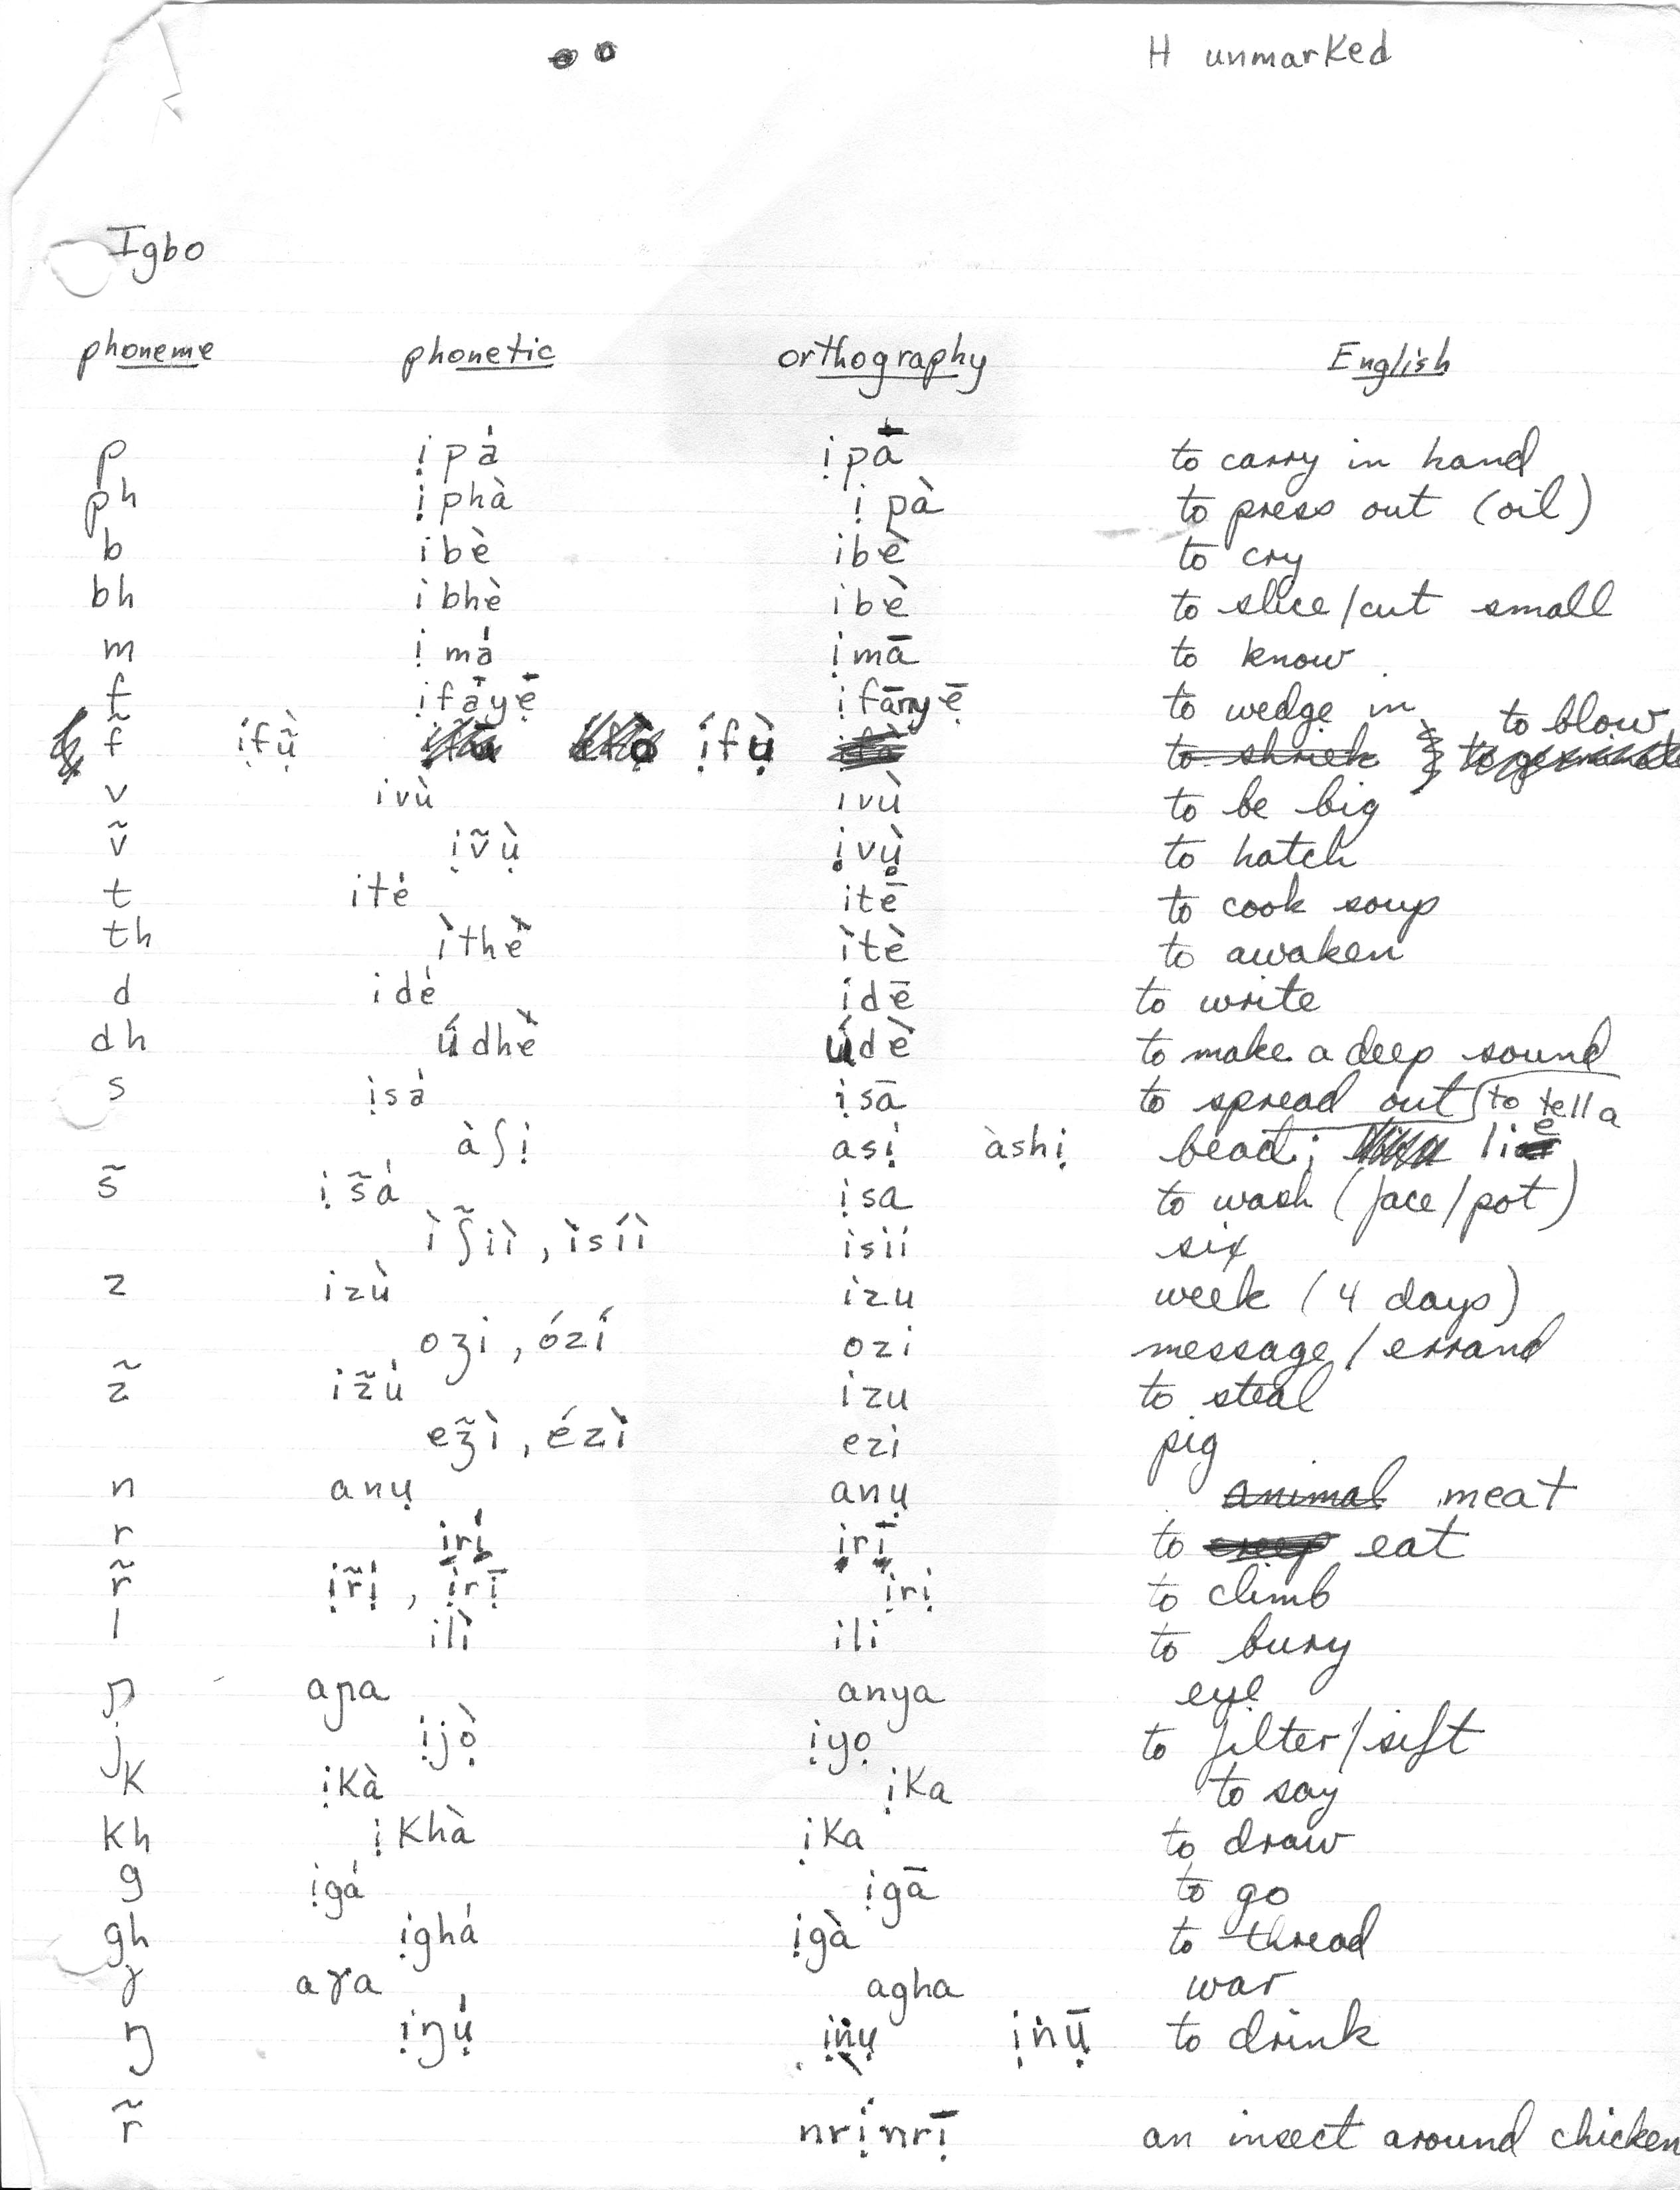 H unmarked
Igbo
phoneme phonetic orthography English
p ịpá ịpā to carry in hand
ph ịphà ịpà to press out (oil)
b ibè ibè to cry
bh ibhè ibè to slice/cut small
m ịmá ịmā to know
f ịfáyẹ̄ ịfānyẹ̄ to wedge in
f̃ ịfụ̃̀ ị́fụ̀ to shriek to blow
v ivù ivù to be big
ṽ ịṽụ̀ ịvụ̀ to hatch
t ité itē to cook soup
th ìthè ìtè to awaken
d idé idē to write
dh údhè údè to make a deep sound
s ịsá ịsā to spread out to tell a
àʃị asị àshị bead; lie
s̃ ịs̃á ịsa to wash (face/pot)
ìʃ̃iì, ìsíì isii six
z izù izu week (4 days)
oʒi, ózí ozi message/errand
z̃ iz̃ú izu to steal
eʒ̃ì, ézì ezi pig
n anụ anụ animal meat
r irí irī to eat
r̃ ịr̃ị́, ịrī ịrị to climb
l ilì ili to bury
ɲ aɲa anya eye
j ịjọ̀ ịyọ to filter/sift
k ịkà ịka to say
kh ịkhà ịka to draw
g ịgá ịgā to go
gh ịghá ịgà to thread
ɣ aɣa agha war
ŋ ịŋụ́ ịṅụ ịṅụ̄ to drink
r̃ nrịnrī an insect around chicken